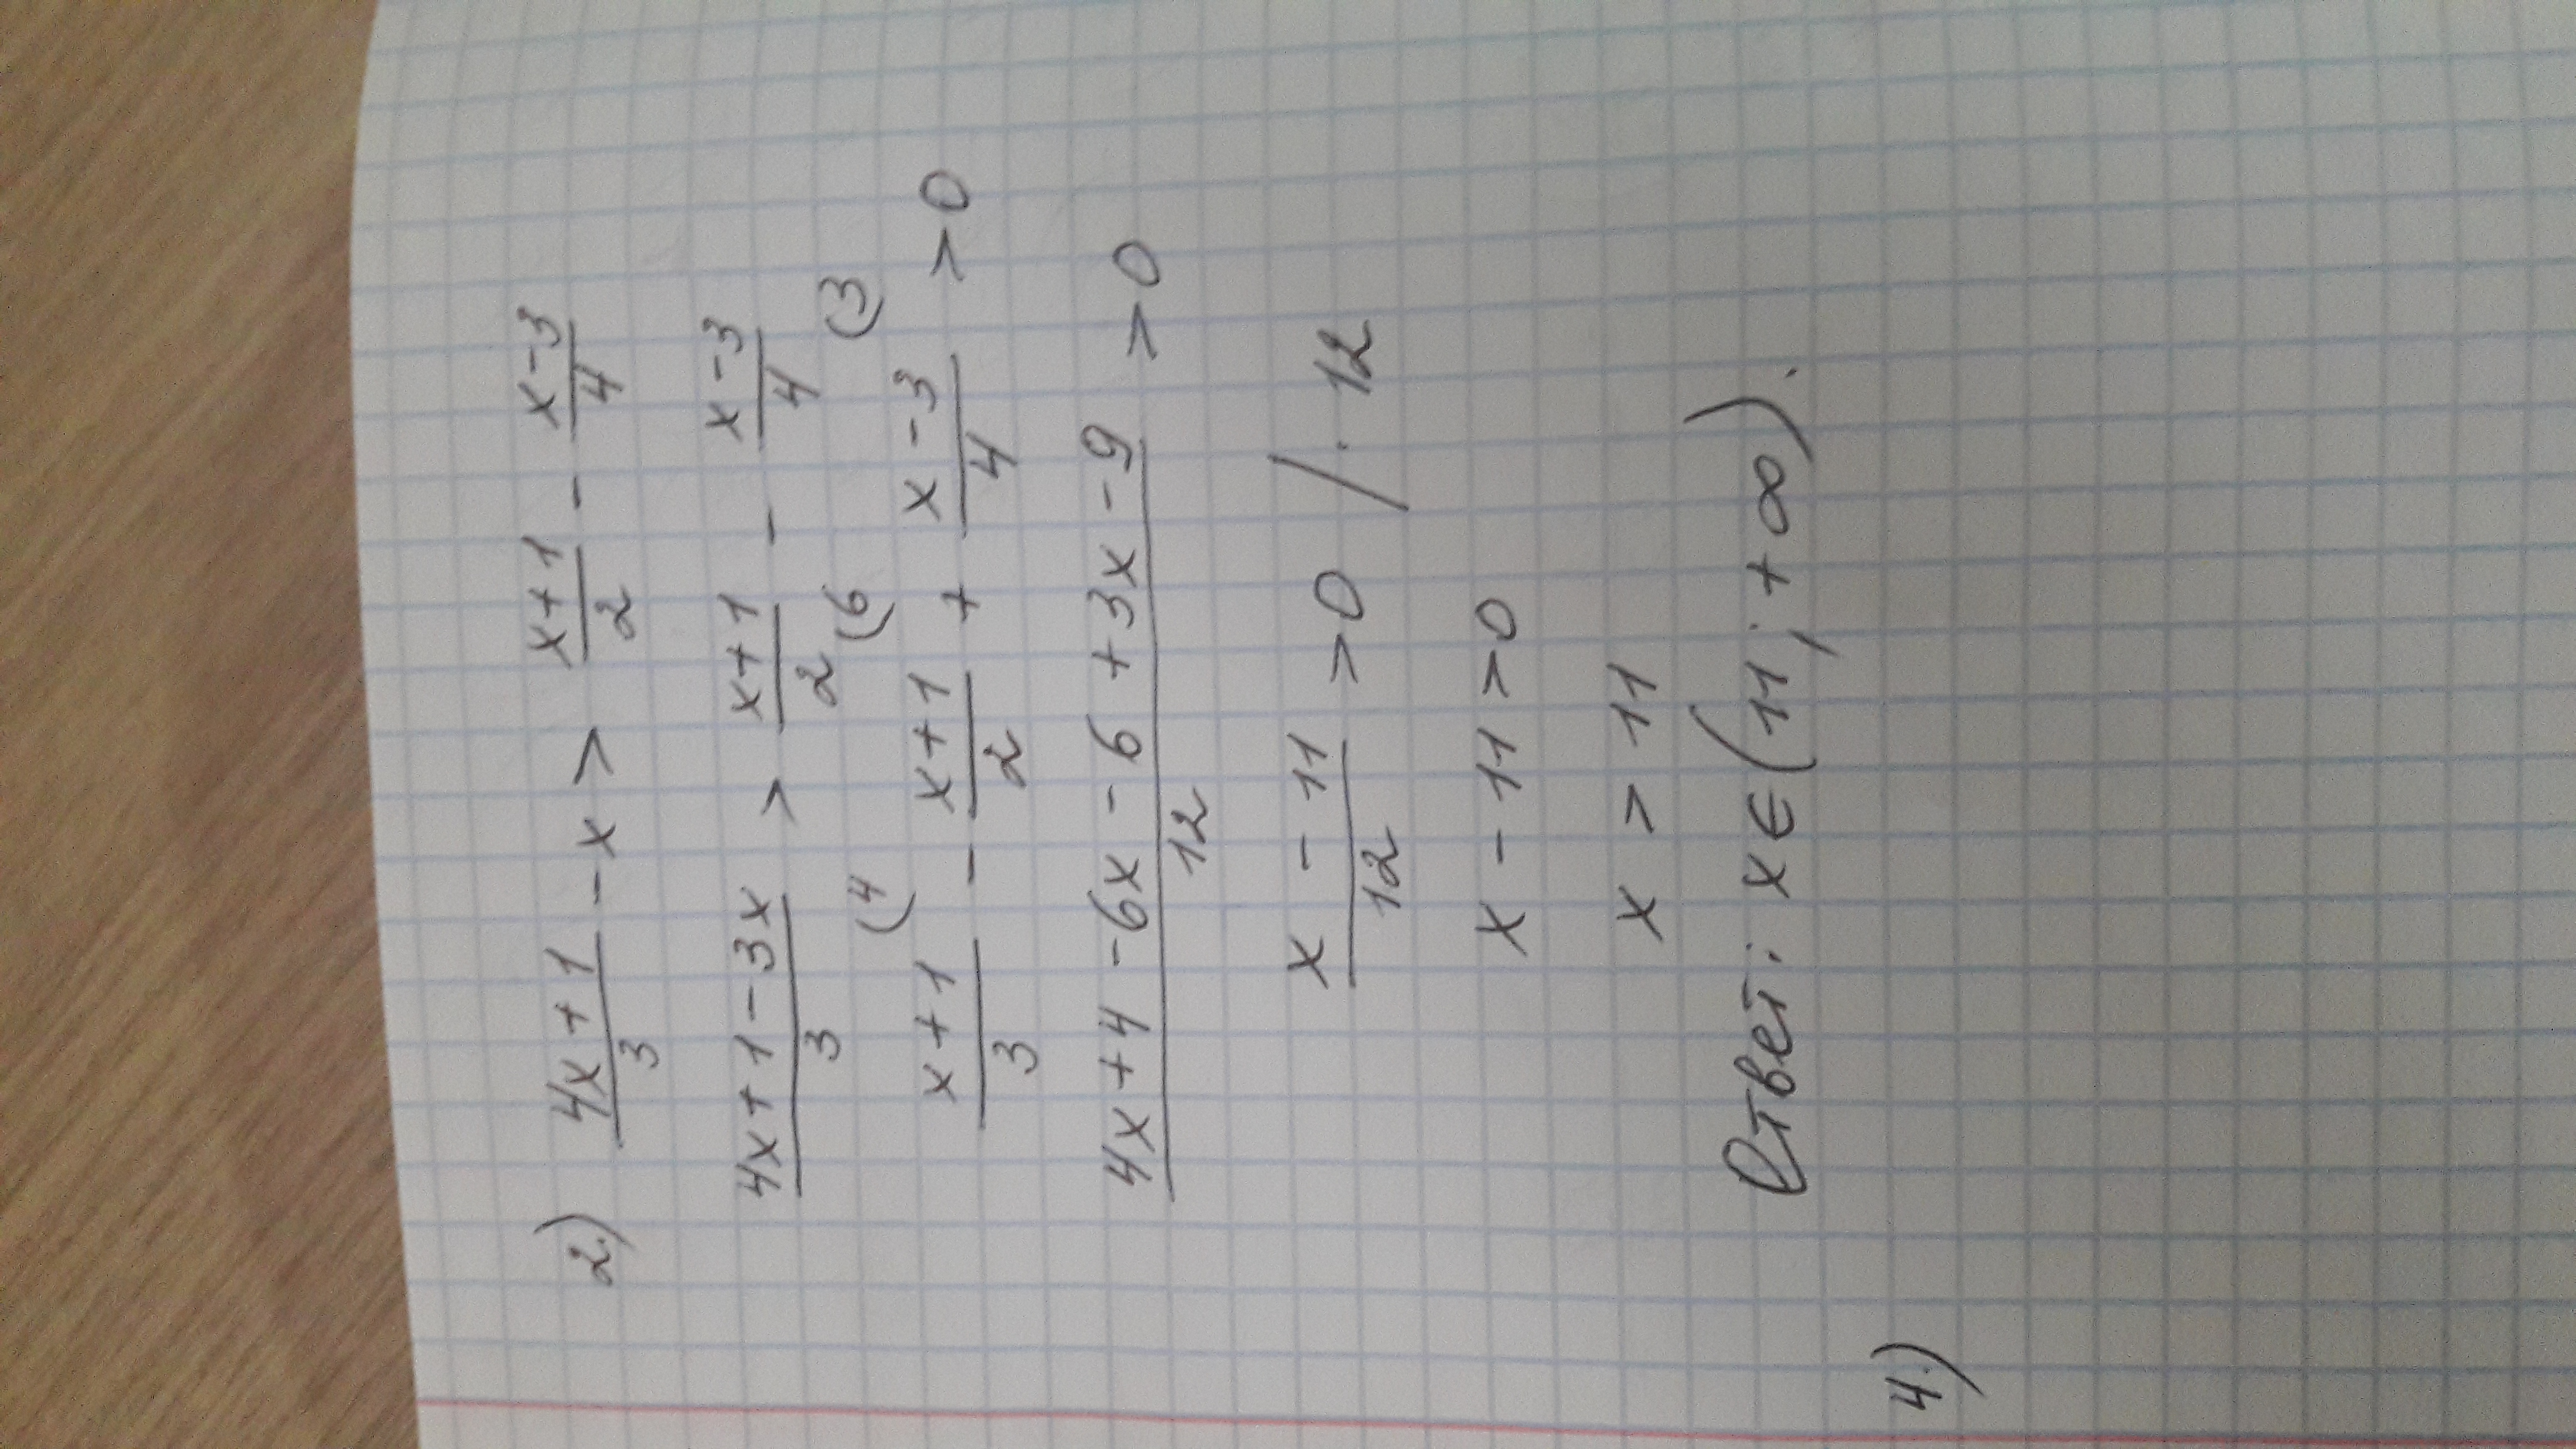 2.) (4x+1)/3 - x > (x+1)/2 - (x-3)/4
(4x+1-3x)/3 > (x+1)/2 - (x-3)/4
(4 (6 (3
(x+1)/3 - (x+1)/2 + (x-3)/4 > 0
(4x+4-6x-6+3x-9)/12 > 0
(x-11)/12 > 0 / · 12
x - 11 > 0
x > 11
Ответ: x ∈ (11; +∞).
4.)